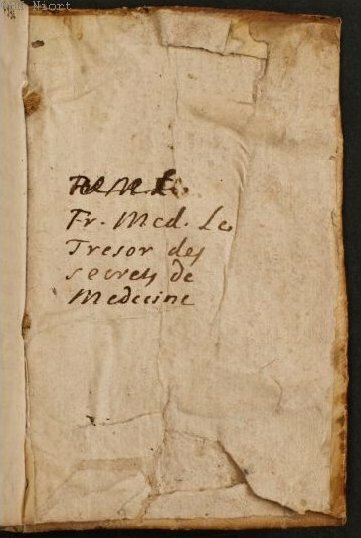 Niort
Fr. Med. Le
Tresor des
secrets de
Medecine